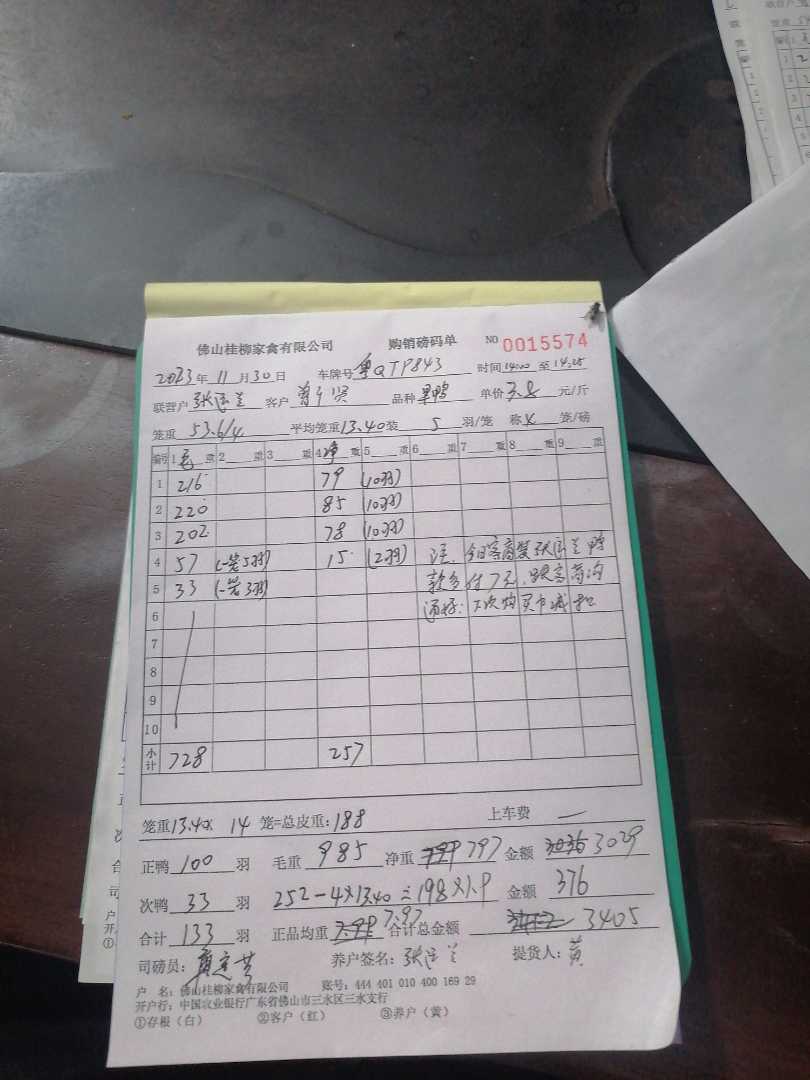 佛山桂柳家禽有限公司 购销磅码单 NO 0015574
2023年 11月 30日 车牌号 粤QTP843 时间 14:00 至 14:25
联营户 张 兰 客户 贤 品种 鸭 单价 3.8 元/斤
笼重 53.6/4 平均笼重 13.40 装 5 羽/笼 称 4 笼/磅
编号 1 毛 重 2 重 3 重 4 净 重 5 重 6 重 7 重 8 重 9 重
1 216 79 (10羽)
2 220 85 (10羽)
3 202 78 (10羽)
4 57 (一笼5羽) 15 (2羽) 注: 今日客商装张 兰鸭
5 33 (一笼3羽) 款多付7元,跟客商沟
6 通好:下次 买 减
7
8
9
10
小计 728 257
笼重 13.40 x 14 笼=总皮重: 188 上车费 —
正鸭 100 羽 毛重 985 净重 797 金额 3029
次鸭 33 羽 252-4×13.40=198×1.9 金额 376
合计 133 羽 正品均重 7.97 合计总金额 3405
司磅员: 养户签名: 张 兰 提货人: 黄
户 名: 佛山桂柳家禽有限公司 账号: 444 401 010 400 169 29
开户行: 中国农业银行广东省佛山市三水区三水支行
①存根(白) ②客户(红) ③养户(黄)